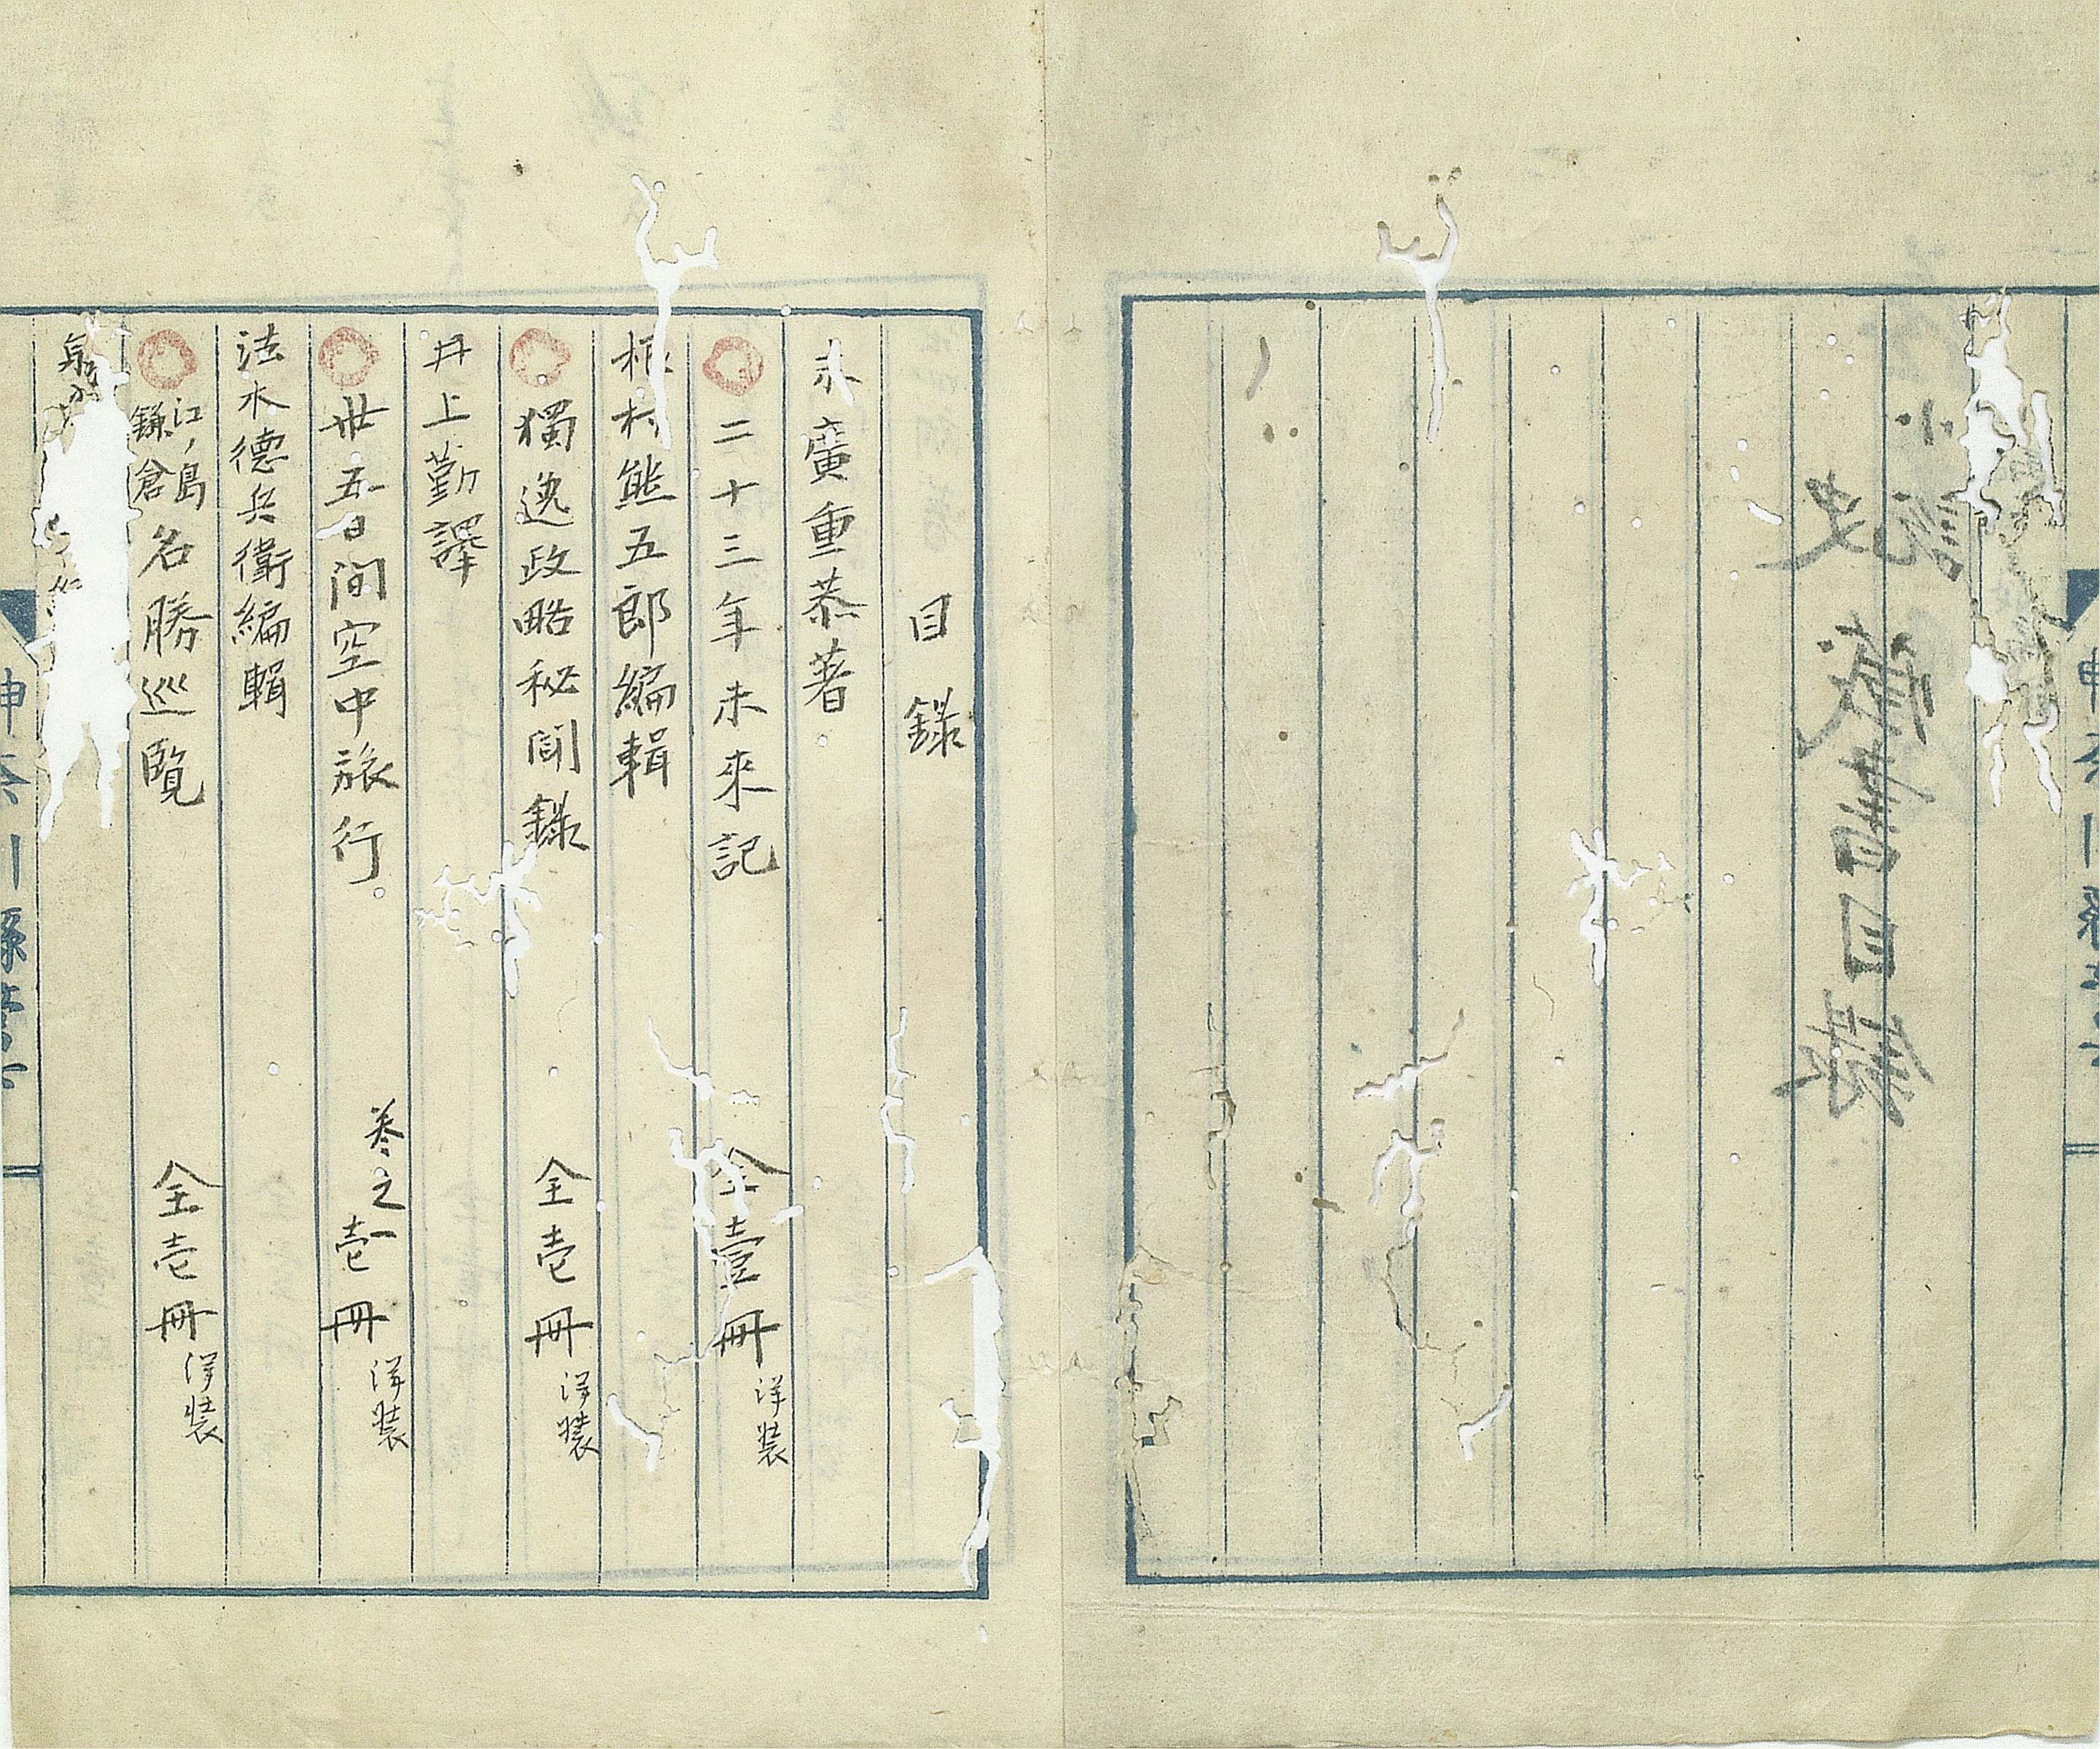 目錄
末廣重恭著
二十三年未來記 全壹冊 洋装
根村熊五郎編輯
獨逸政略秘聞錄 全壱冊 洋装
井上勤譯
丗五日間空中旅行。 卷之一 壱冊 洋装
法木德兵衛編輯
江ノ島鎌倉名勝巡覧 全壱冊 洋装